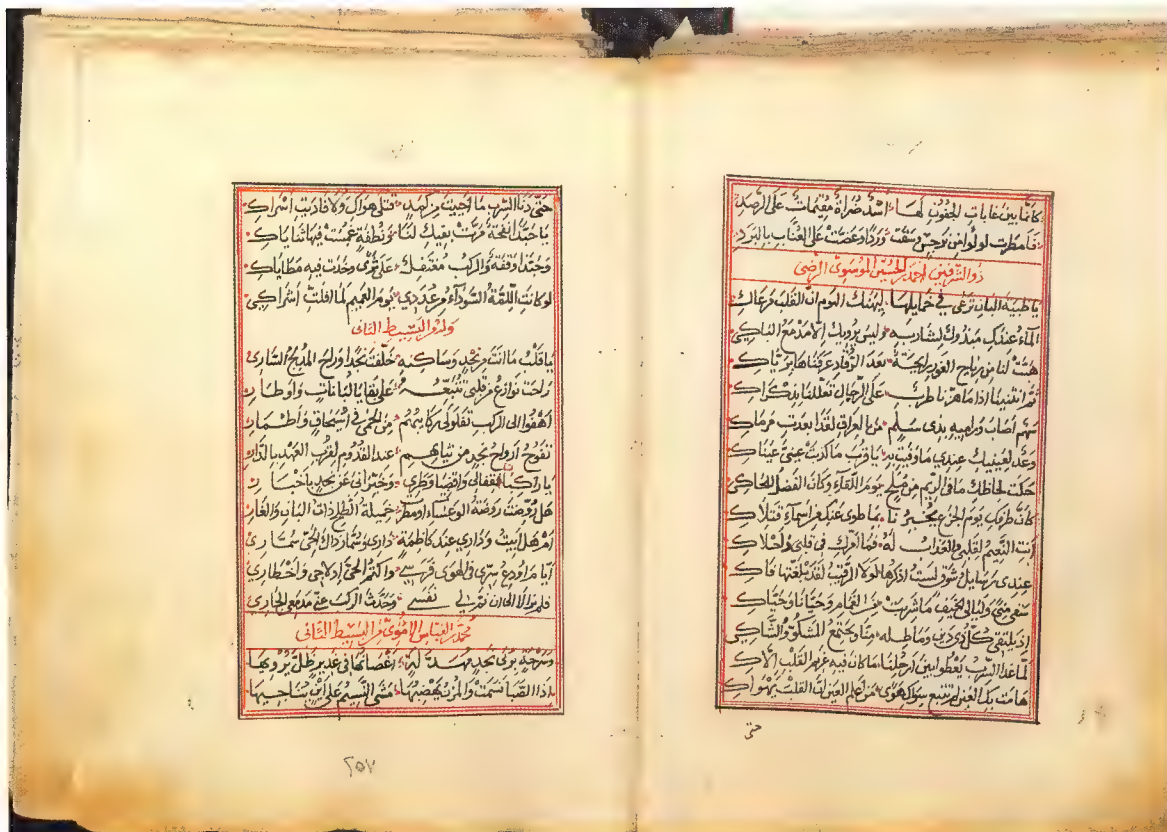 كأنما بين غابات الجفون لها أسد ضراة مقيمات على الرصد
فأمطرت لؤلؤا من نرجس وسقت وردا وعضت على العناب بالبرد
ذو الشرفين الحسين الموسوي الرضي
يا ظبية البان ترعى في خمايلها ليهنك اليوم ان القلب مرعاك
الماء عندك مبذول لشاربه وليس يرويك الا مدمع الباكي
هبت لنا من رياح الغور رايحة بعد الرقاد عرفناها برياك
ثم انثنينا اذا ما هزنا طرب على الرحال تعللنا بذكراك
سهم أصاب وراميه بذي سلم من بالعراق لقد ابعدت مرماك
وعد لعينيك عندي ما وفيت به يا قرب ما كذبت عيني عيناك
حكت لحاظك ما في الريم من ملح يوم اللقاء وكان الفضل للحاكي
كأن طرفك يوم الجزع يخبرنا بما طوى عنك من أسماء قتلاك
انت النعيم لقلبي والعذاب له فما أمرك في قلبي وأحلاك
عندي رسايل شوق لست اذكرها لولا الرقيب لقد بلغتها فاك
سقى منى وليالي الخيف ما شربت من الغمام وحيانا وحياك
اذ يلتقي كل ذي دين وماطله منا ويجتمع المشكو والشاكي
لما غدا السرب يعطو بين ارحلنا ما كان فيه غريم القلب الاك
هامت بك العين لم تتبع سواك هوى من اعلم العين ان القلب يهواك
حتى
حتى دنا السرب ما أحييت من كمد قتلى هواك ولا فاديت اسراك
يا حبذا نفحة مرت بفيك لنا ونطفة غمست فيها ثناياك
وحبذا وقفة والركب مغتفل على ثرى وخدت فيه مطاياك
لو كانت اللمة السوداء من عددي يوم الغميم لما افلت اشراكي
وله من البسيط الثاني
يا قلب ما انت من نجد وساكنه خلفت نجدا وراء المدلج الساري
راحت نوازع من قلبي تتبعه على بقايا لبانات واوطار
اهفوا الى الركب تعلو لي ركابهم من الحمى في اسيحاق واطمار
تفوح ارواح نجد من ثيابهم عند القدوم لقرب العهد بالدار
يا راكبان قفا لي واقضيا وطري وخبراني عن نجد باخبار
هل روضت روضة الوعساء او مطرت خميلة الطلح ذات البان والغار
ام هل أبيت وداري عند كاظمة داري وسمار ذاك الحي سماري
ايام اودع سري في الهوى فرسي واكتم الحي إدلاجي وأخطاري
فلم يزالا الى ان نم بي نفسي وحدث الركب عني مدمعي الجاري
محمد بن العباس الاموي من البسيط الثاني
وسرحة بربى نجد مهدلة اغصانها في غدير ظل يرويها
اذا الصبا نسمت والمزن يهضبها مشى النسيم على أين يناجيها
٢٥٧